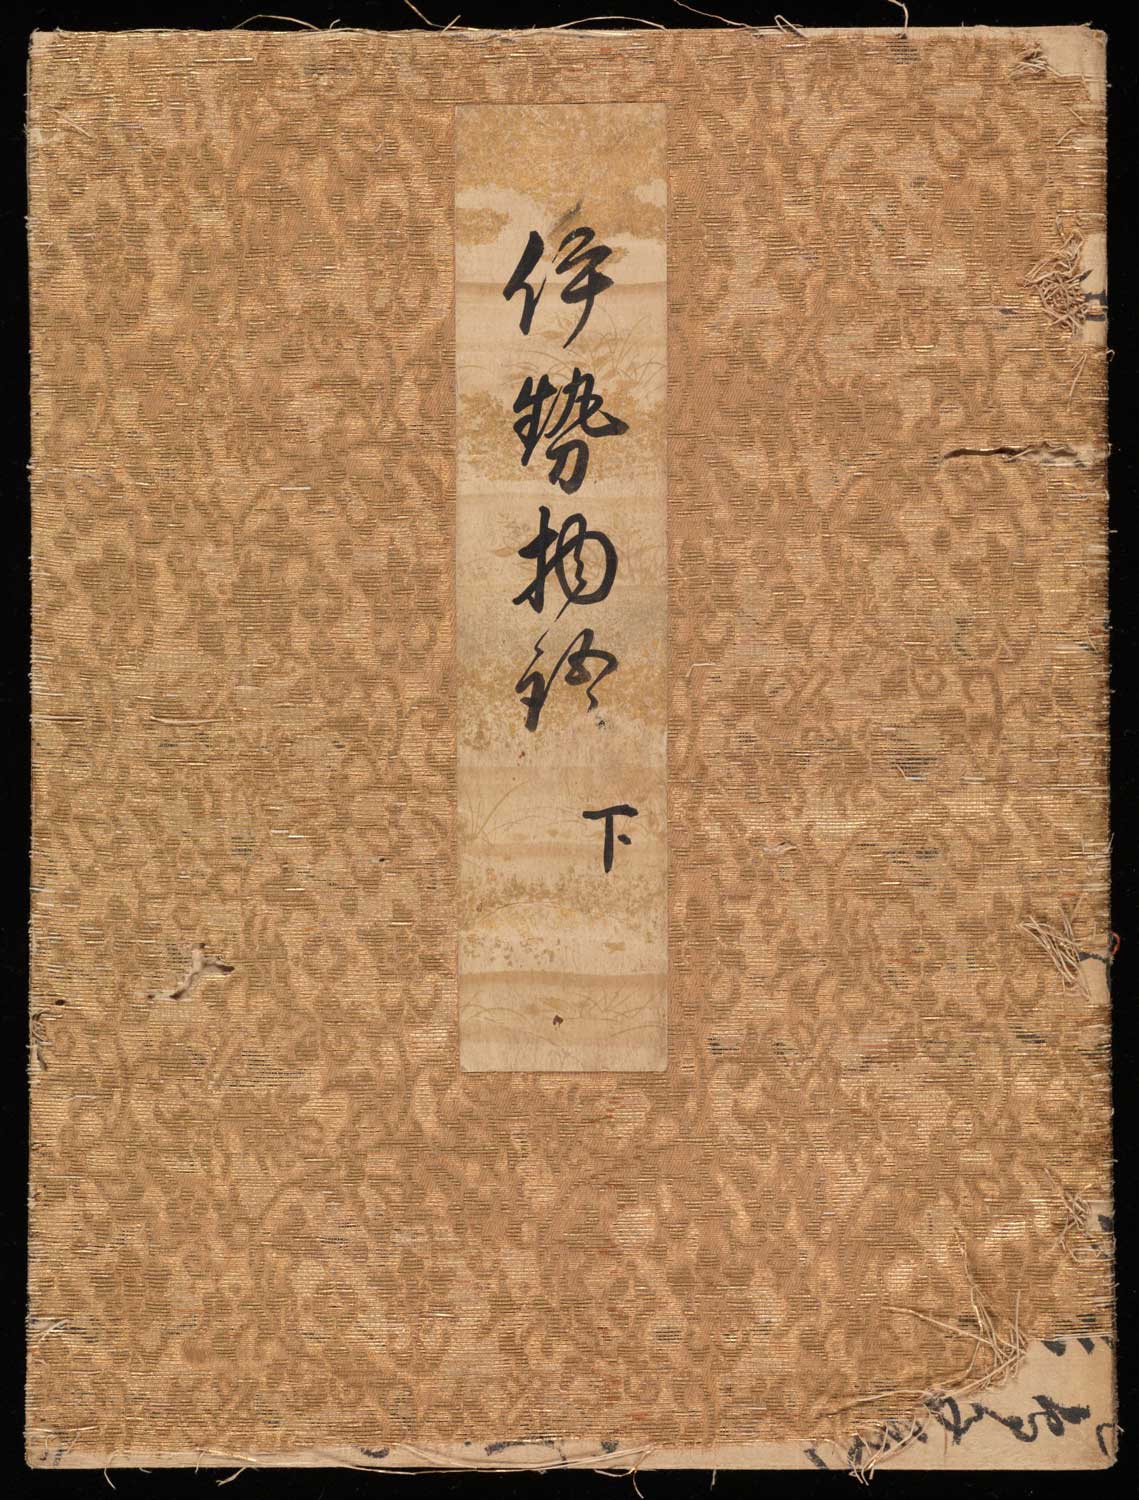 伊勢物語
下